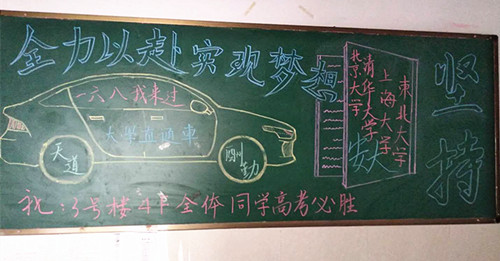 全力以赴实现梦想
一六八我来过
大學直通車
天道
酬勤
北京大学
清华大学
上海大学
東北大学
安大
坚持
祝:3号楼4F全体同学高考必胜